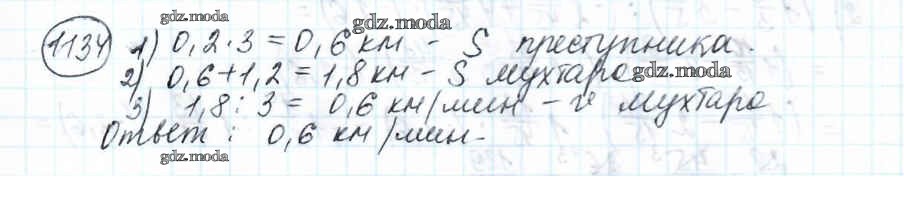 gdz.moda
gdz.moda
1134 1) 0,2·3 = 0,6 км - S преступника.
2) 0,6+1,2 = 1,8 км - S Мухтара
gdz.moda
3) 1,8 : 3 = 0,6 км/мин - v Мухтара.
Ответ: 0,6 км/мин.
gdz.moda